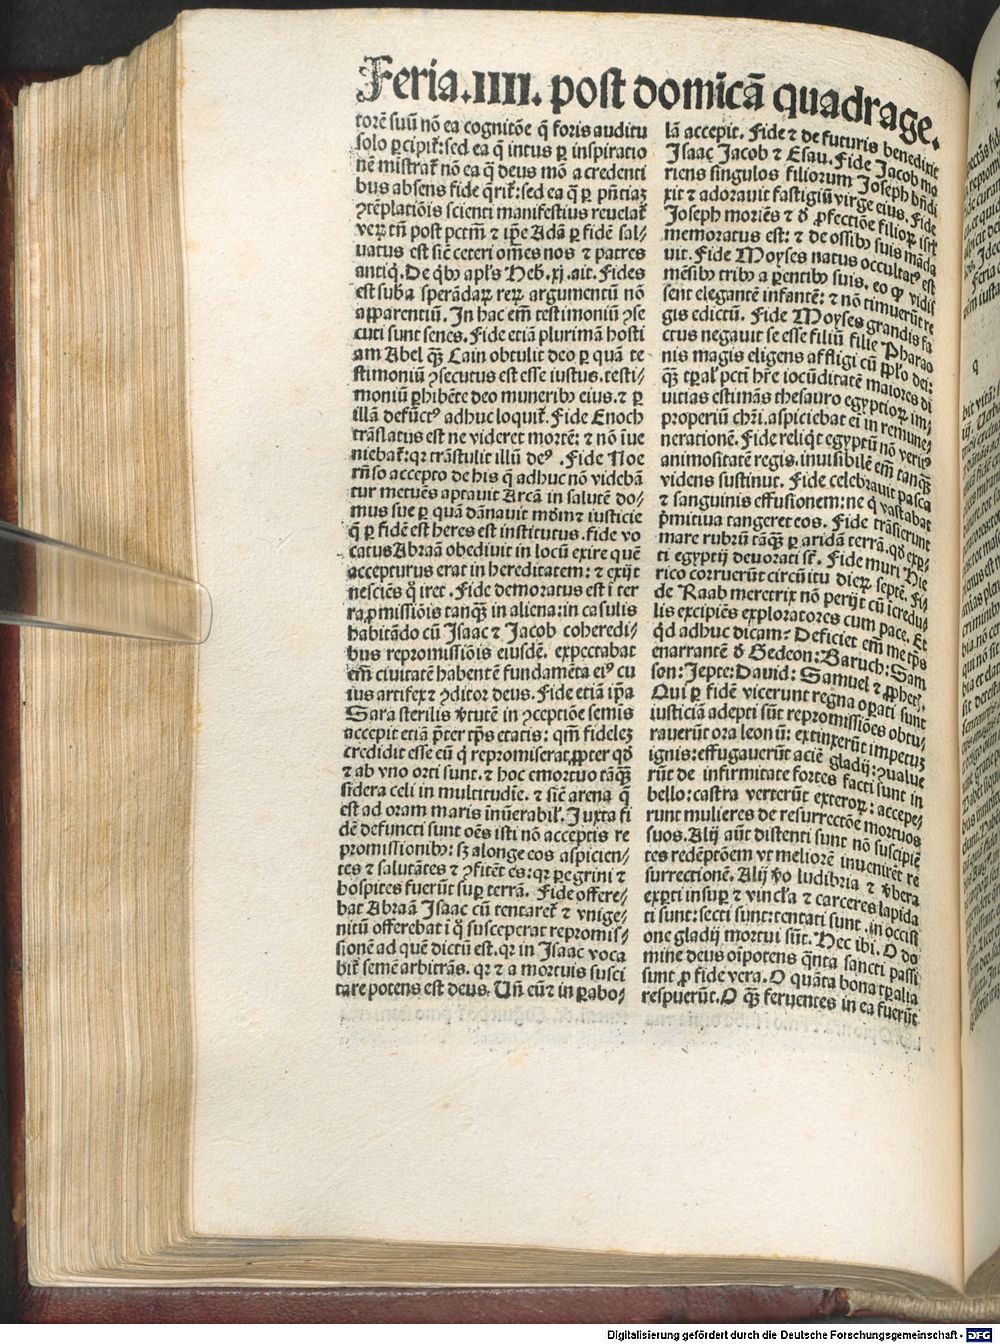 Feria.IIII. post domīcā quadrage.
torē suū nō ea cognitōe q̄ foris auditu
solo ꝑcipit̄:sed ea q̄ intus ꝑ inspiratio
nē mistrat̄ nō ea q̄ deus mō a credenti
bus absens fide q̄rit̄:sed ea q̄ ꝑ pn̄tiaꝫ
ꝯtēplatiōis scienti manifestius reuelat̄
veꝝ tn̄ post pctm̄ ⁊ ip̄e Adā ꝑ fidē sal⸗
uatus est sic̄ ceteri om̄es nos ⁊ patres
antiq̄. De qͥbꝰ apl̄s Heb. xj. ait. Fides
est suba sperādaꝝ reꝝ argumentū nō
apparentiū. In hac em̄ testimoniū ꝯse
cuti sunt senes. Fide etiā plurimā hosti
am Abel qꝫ̄ Cain obtulit deo ꝑ quā te
stimoniū ꝯsecutus est esse iustus. testi⸗
moniū ꝑhibēte deo muneribꝰ eius. ⁊ ꝑ
illā defūctꝰ adhuc loquit̄. Fide Enoch
trāslatus est ne videret mortē: ⁊ nō īue
niebat̄: qꝛ trāstulit illū deꝰ. Fide Noe
rn̄so accepto de his q̄ adhuc nō videbā
tur metuēs aptauit Arcā in salutē do⸗
mus sue ꝑ quā dānauit mdm̄ ⁊ iusticie
q̄ ꝑ fidē est heres est institutus. fide vo
catus Abraā obediuit in locū exire quē
accepturus erat in hereditatem: ⁊ exijt
nesciēs q̊ iret. Fide demoratus est ī ter
ra ꝓmissiōis tanqꝫ̄ in aliena: in casulis
habitādo cū Isaac ⁊ Jacob coheredi⸗
bus repromissiōis eiusdē. expectabat
em̄ ciuitatē habentē fundamēta eiꝰ cu
ius artifex ⁊ ꝯditor deus. Fide etiā ip̄a
Sara sterilis v̄tutē in ꝯceptiōe semīs
accepit etiā p̄ter tp̄s etatis: qm̄ fidelez
credidit esse eū q̄ repromiserat ꝓpter qd̄
⁊ ab vno orti sunt. ⁊ hoc emortuo tāqꝫ̄
sidera celi in multitudīe. ⁊ sic̄ arena q̄
est ad oram maris īnūerabil̓. Juxta fi
dē defuncti sunt oēs isti nō acceptis re
promissionibꝰ: sꝫ a longe eos aspicien⸗
tes ⁊ salutātes ⁊ ꝯfitētes: qꝛ ꝑegrini ⁊
hospites fuerūt suꝑ terrā. Fide offere⸗
bat Abraā Isaac cū tentaret̄ ⁊ vnige⸗
nitū offerebat ī q̊ susceperat repromis⸗
sionē ad quē dictū est. qꝛ in Isaac voca
bit̄ semē arbitrās. qꝛ ⁊ a mortuis susci
tare potens est deus. Vn̄ eū ⁊ in ꝑabo⸗
lā accepit. Fide ⁊ de futuris benedixit
Isaac Jacob ⁊ Esau. Fide Jacob mo
riens singulos filiorum Joseph bn̄di
xit ⁊ adorauit fastigiū virge eius. Fide
Joseph moriēs ⁊ d̄ ꝓfectiōe filioꝝ isrl̄
memoratus est: ⁊ de ossibꝰ suis māda
uit. Fide Moyses natus occultatꝰ est
mēsibꝰ tribꝰ a ꝑentibꝰ suis. eo qꝙ vidis
sent elegantē infantē: ⁊ nō timuerūt re
gis edictū. Fide Moyses grandis fa
ctus negauit se esse filiū filie Pharao
nis magis eligens affligi cū ppl̄o dei:
qꝫ̄ tꝑal̓ pcti hr̄e iocūditatē maiores di
uitias estimās thesauro egyptioꝝ im⸗
properiū chr̄i. aspiciebat eī in remune⸗
rationē. Fide reliq̄t egyptū nō veritꝰ
animositatē regis. inuisibilē em̄ tanqꝫ̄
videns sustinut. Fide celebrauit pasca
⁊ sanguinis effusionem: ne q̄ vastabat
p̄mitiua tangeret eos. Fide trāsierunt
mare rubrū tāqꝫ̄ ꝑ aridā terrā. qd̄ exꝑ⸗
ti egyptij deuorati st̄. Fide muri Hie
rico corruerūt circūitu dieꝝ septē. Fi⸗
de Raab meretrix nō perijt cū īcredu⸗
lis excipiēs exploratores cum pace. Et
qͥd adhuc dicam? Deficiet em̄ me tp̄s
enarrantē d̄ Gedeon: Baruch: Sam
son: Jepte: Dauid: Samuel ⁊ ꝓphetꝭ.
Qui ꝑ fidē vicerunt regna oꝑati sunt
iusticiā adepti sūt repromissiōes obtu⸗
rauerūt ora leonū: extinxerūt impetuꝫ
ignis: effugauerūt aciē gladij: ꝯualue
rūt de infirmitate fortes facti sunt in
bello: castra verterūt exteroꝝ: accepe⸗
runt mulieres de resurrectōe mortuos
suos. Alij aūt distenti sunt nō suscipiē
tes redēptōem vt meliorē inuenirēt re
surrectionē. Alij v̄o ludibria ⁊ v̄bera
exꝑti insuꝑ ⁊ vincl̄a ⁊ carceres lapida
ti sunt: secti sunt: tentati sunt. in occisi
one gladij mortui sūt. Hec ibi. O do
mine deus oīpotens qn̄ta sancti passi
sunt ꝓ fide vera. O quāta bona tꝑalia
respuerūt. O qꝫ̄ feruentes in ea fuerūt
Digitalisierung gefördert durch die Deutsche Forschungsgemeinschaft - DFG